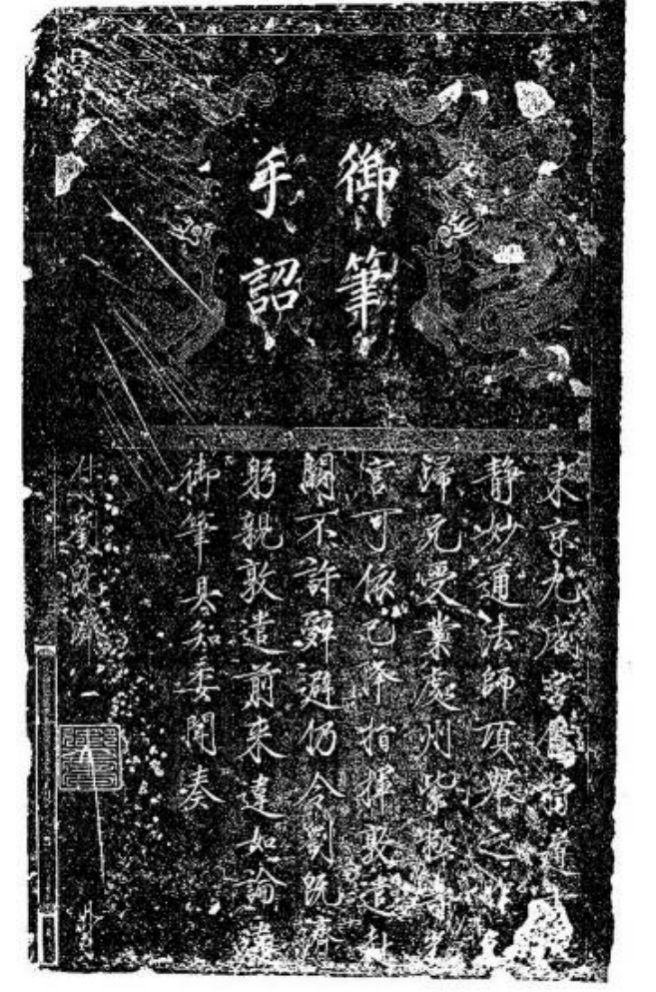 御筆
手詔
東京九成宮
靜妙通法師項舉之昨
歸元受業處州紫極
官可依已降指揮敦遣赴
闕不許辭避仍令劉既濟
躬親敦遣前來違如論
御筆具知委聞奏
付劉既濟